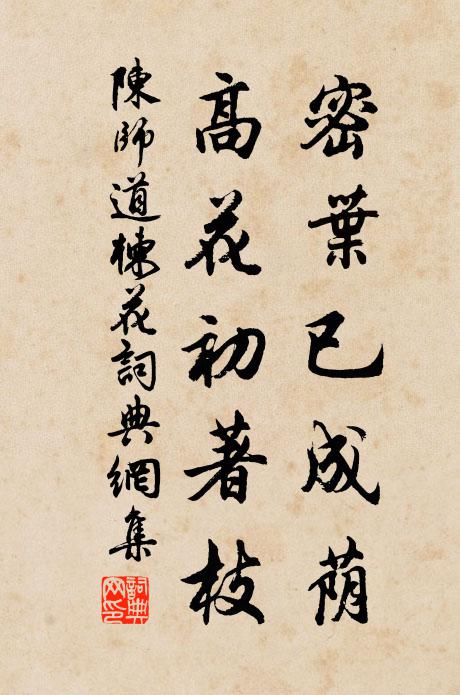 密葉已成蔭
高花初著枝
陳師道楝花詞典網集
詞典網印